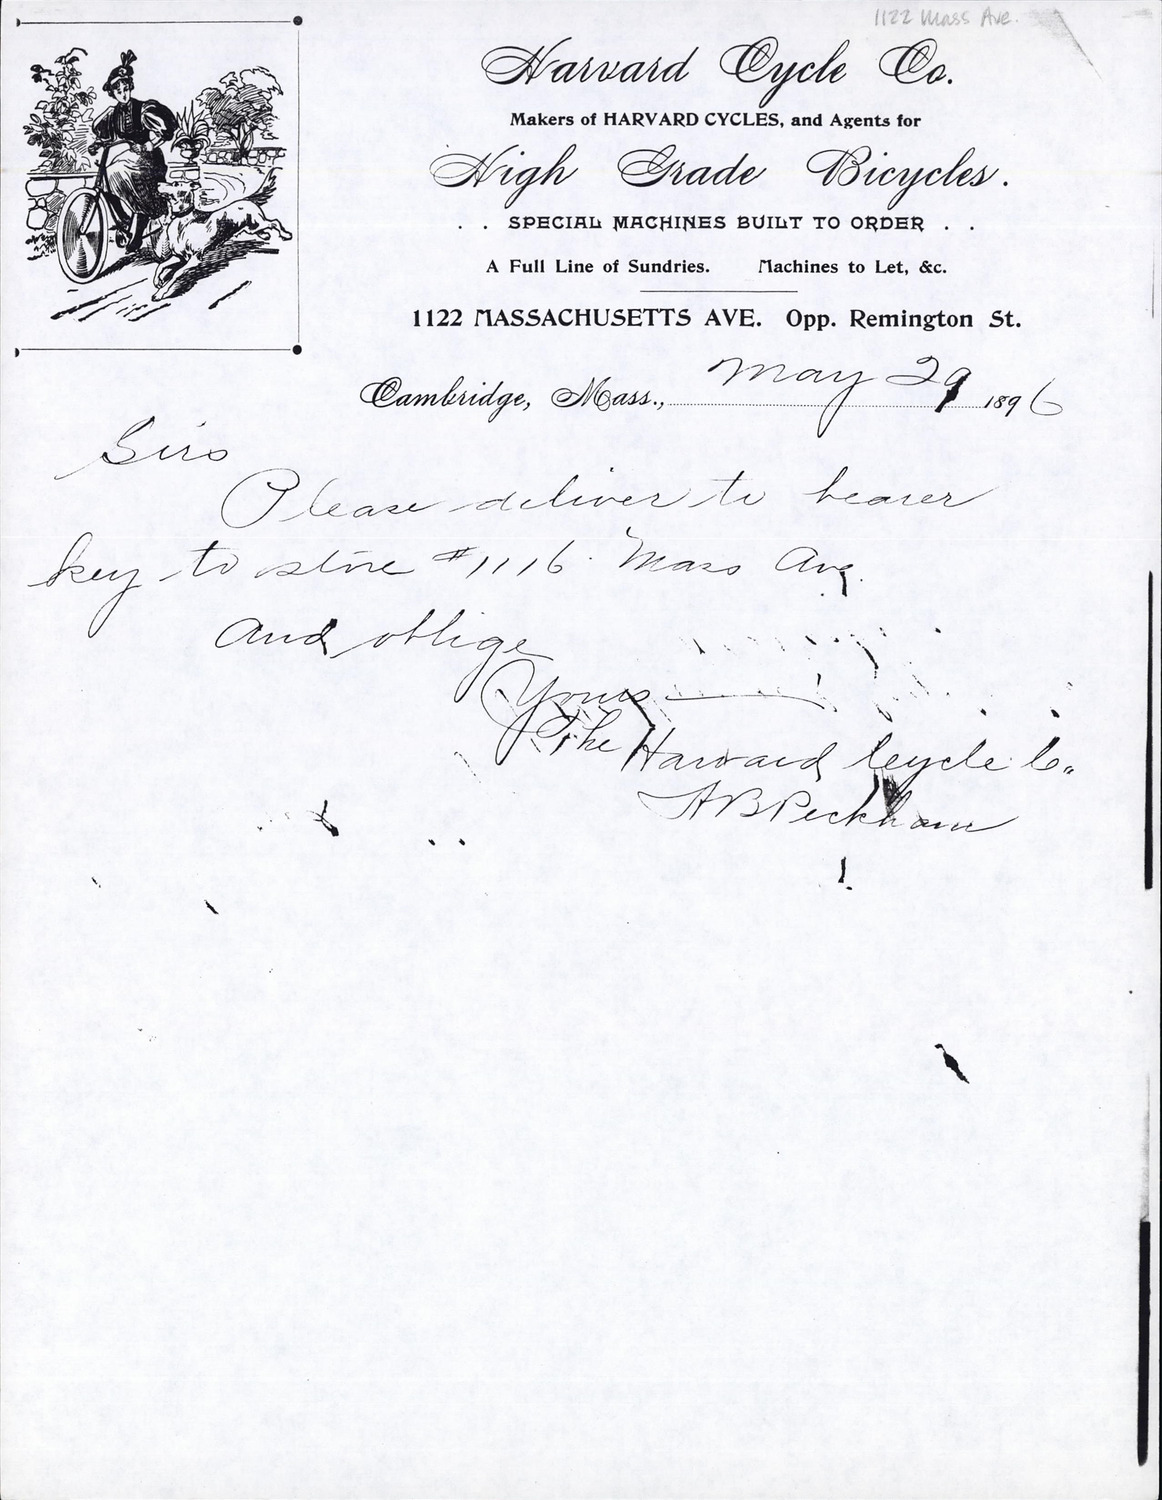 1122 Mass Ave.
Harvard Cycle Co.
Makers of HARVARD CYCLES, and Agents for
High Grade Bicycles.
. . SPECIAL MACHINES BUILT TO ORDER . .
A Full Line of Sundries. Machines to Let, &c.
1122 MASSACHUSETTS AVE. Opp. Remington St.
Cambridge, Mass., May 29 1896
Sirs
Please deliver to bearer
key to store #1116 Mass Ave.
and oblige
Yours
The Harvard Cycle Co.
A B Peckham